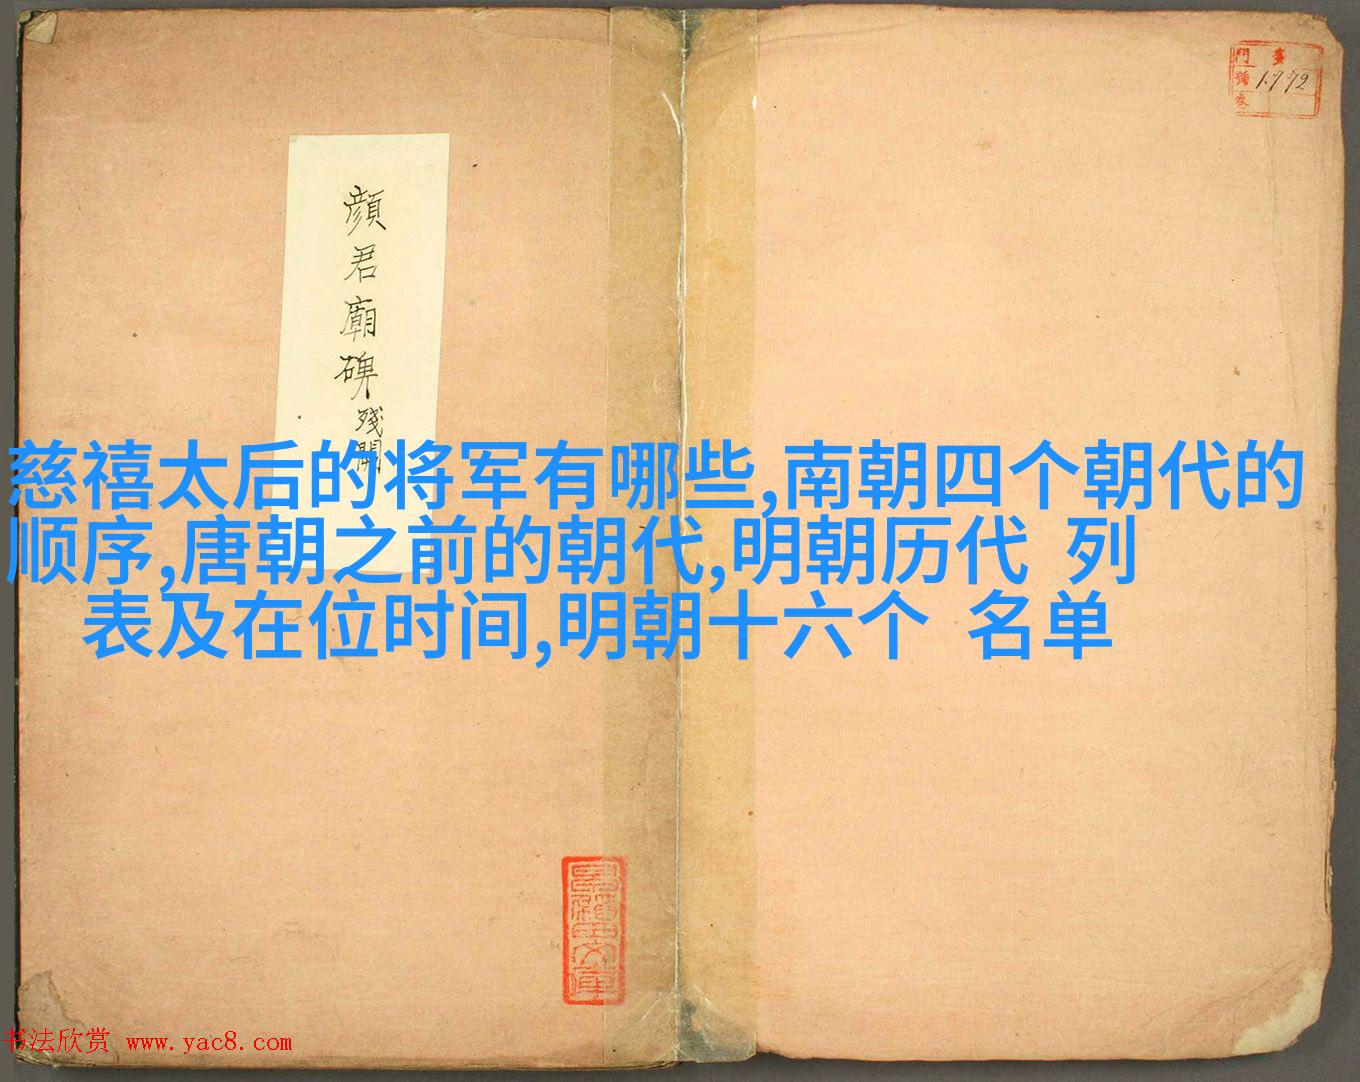 顔君廟碑残闕
門 类
號 1772
慈禧太后的将军有哪些,南朝四个朝代的
顺序,唐朝之前的朝代,明朝历代 列
表及在位时间,明朝十六个 名单
书法欣赏 www.yac8.com